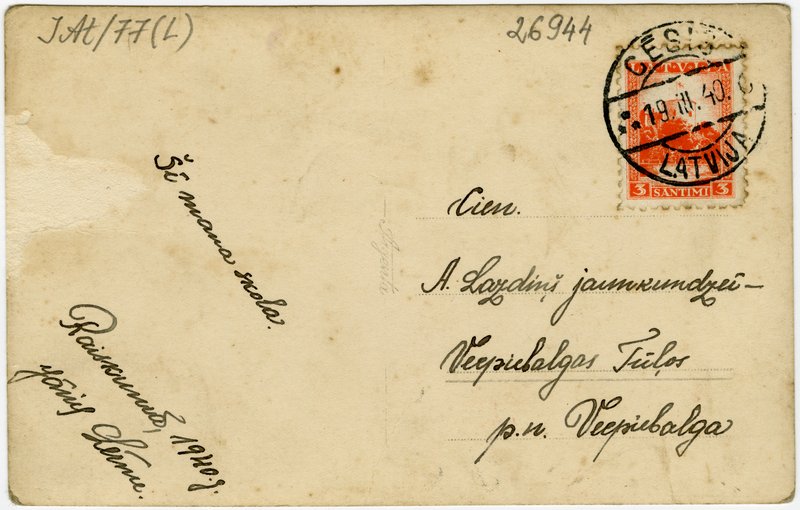 JAt/77(L)
26944
CĒSIS
LATVIJA
19.III.40.
LATVIJA
3 SANTIMI 3
Šī mana skola.
Raiskumā, 1940.g.
Jānis
Cien.
A. Lazdiņš jaunkundzei—
Vecpiebalgas Tūļos
p.n. Vecpiebalga